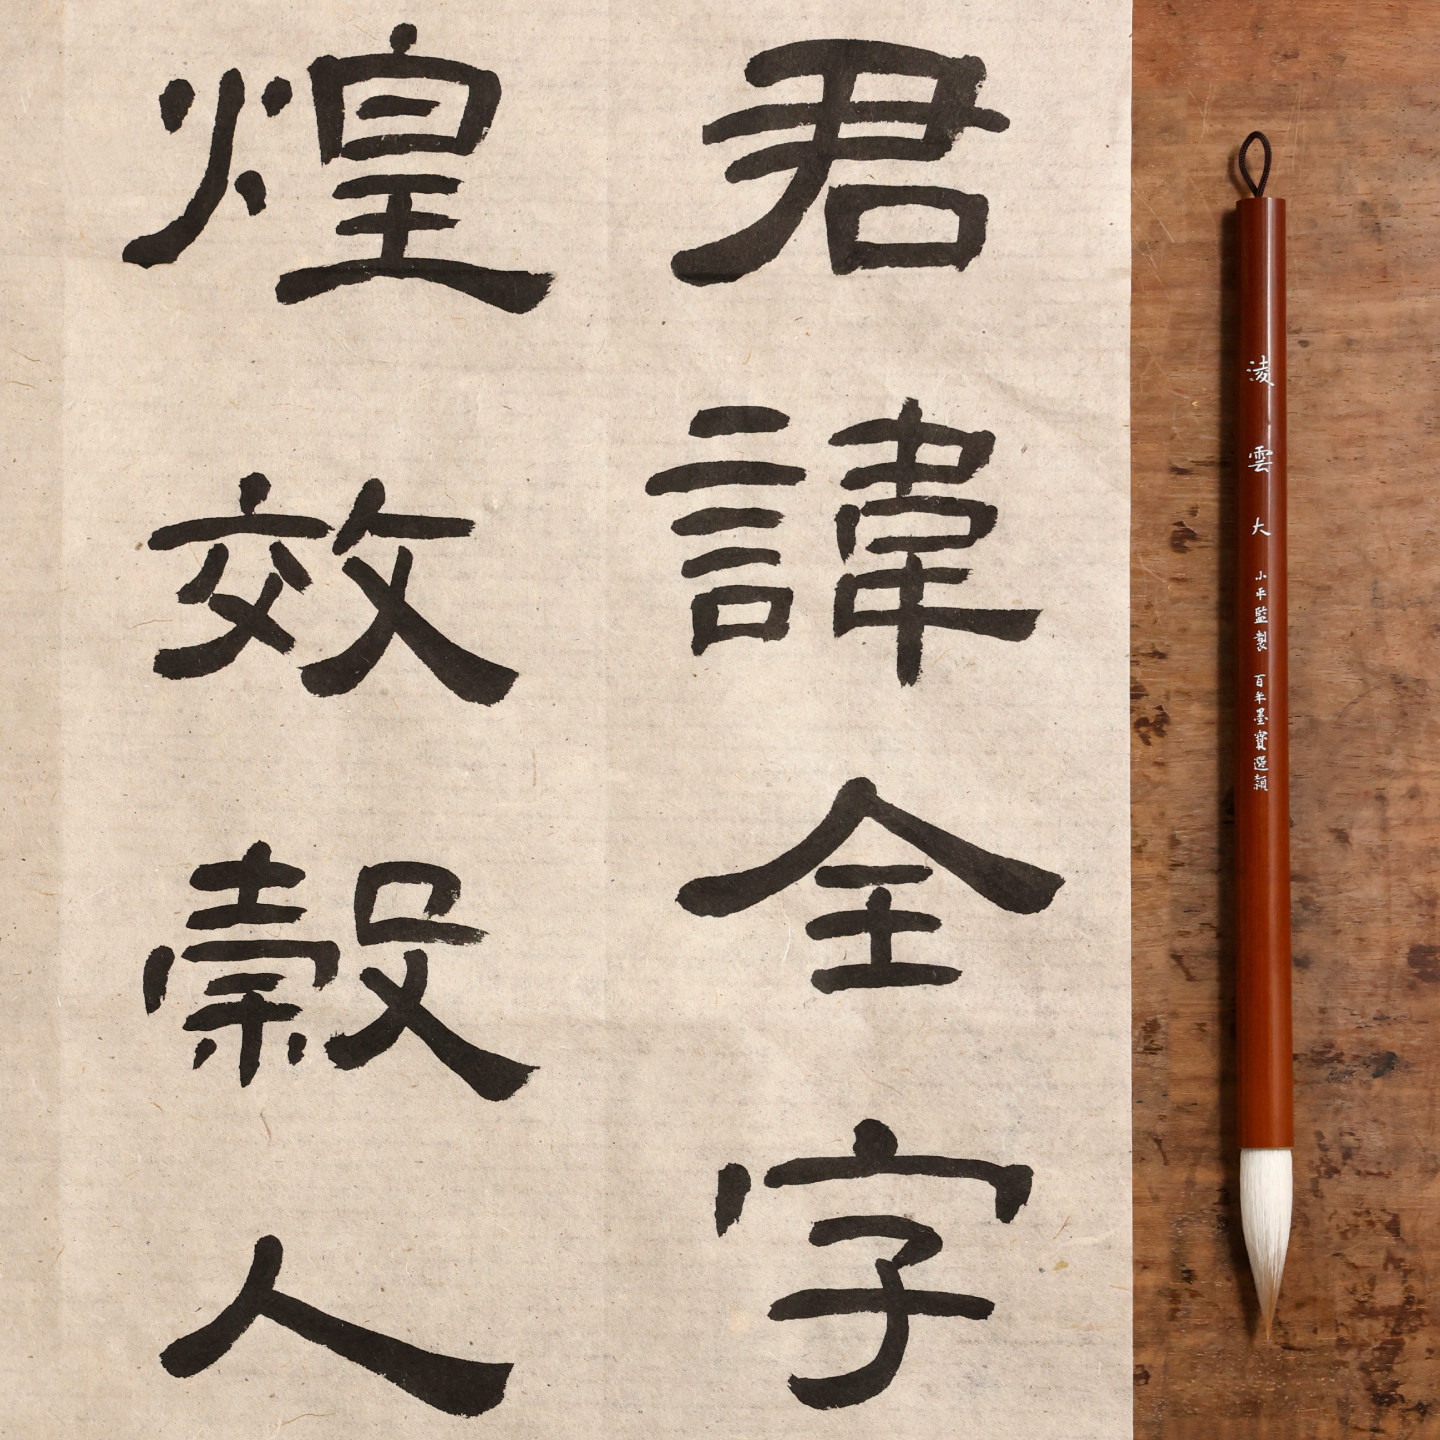 君諱全字
煌效穀人
淩雲大
小平監製 百年墨寶選頴